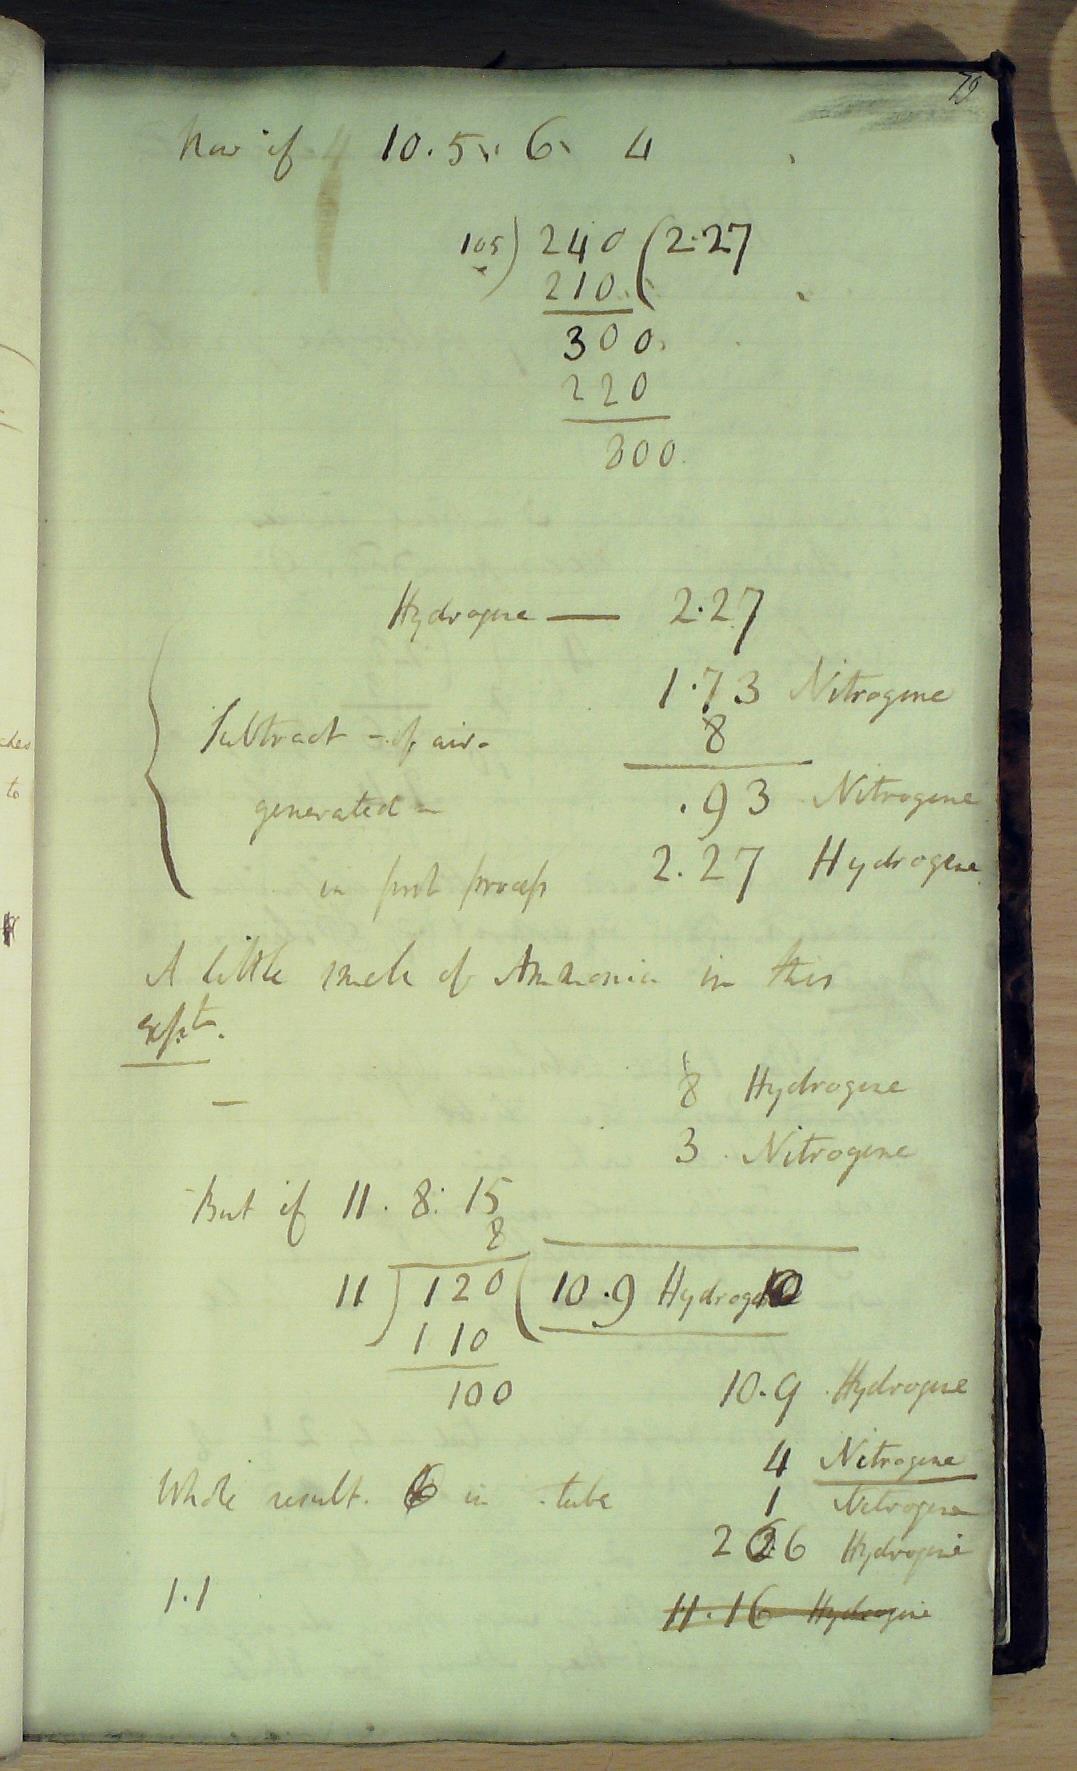 79
Now if 10.5 : 6 4
105) 240 (2.27
210
300
220
800
Hydrogene — 2.27
1.73 Nitrogene
Subtract - of air - 8
generated - .93 Nitrogene
in first process 2.27 Hydrogene
A little smell of Ammonia in this
expt.
8 Hydrogene
3 Nitrogene
But if 11 . 8 : 15
8
11) 120 (10.9 Hydrogene
110
100 10.9 Hydrogene
4 Nitrogene
Whole result. 6 in tube 1 Nitrogene
2 26 Hydrogene
1.1 11.16 Hydrogene